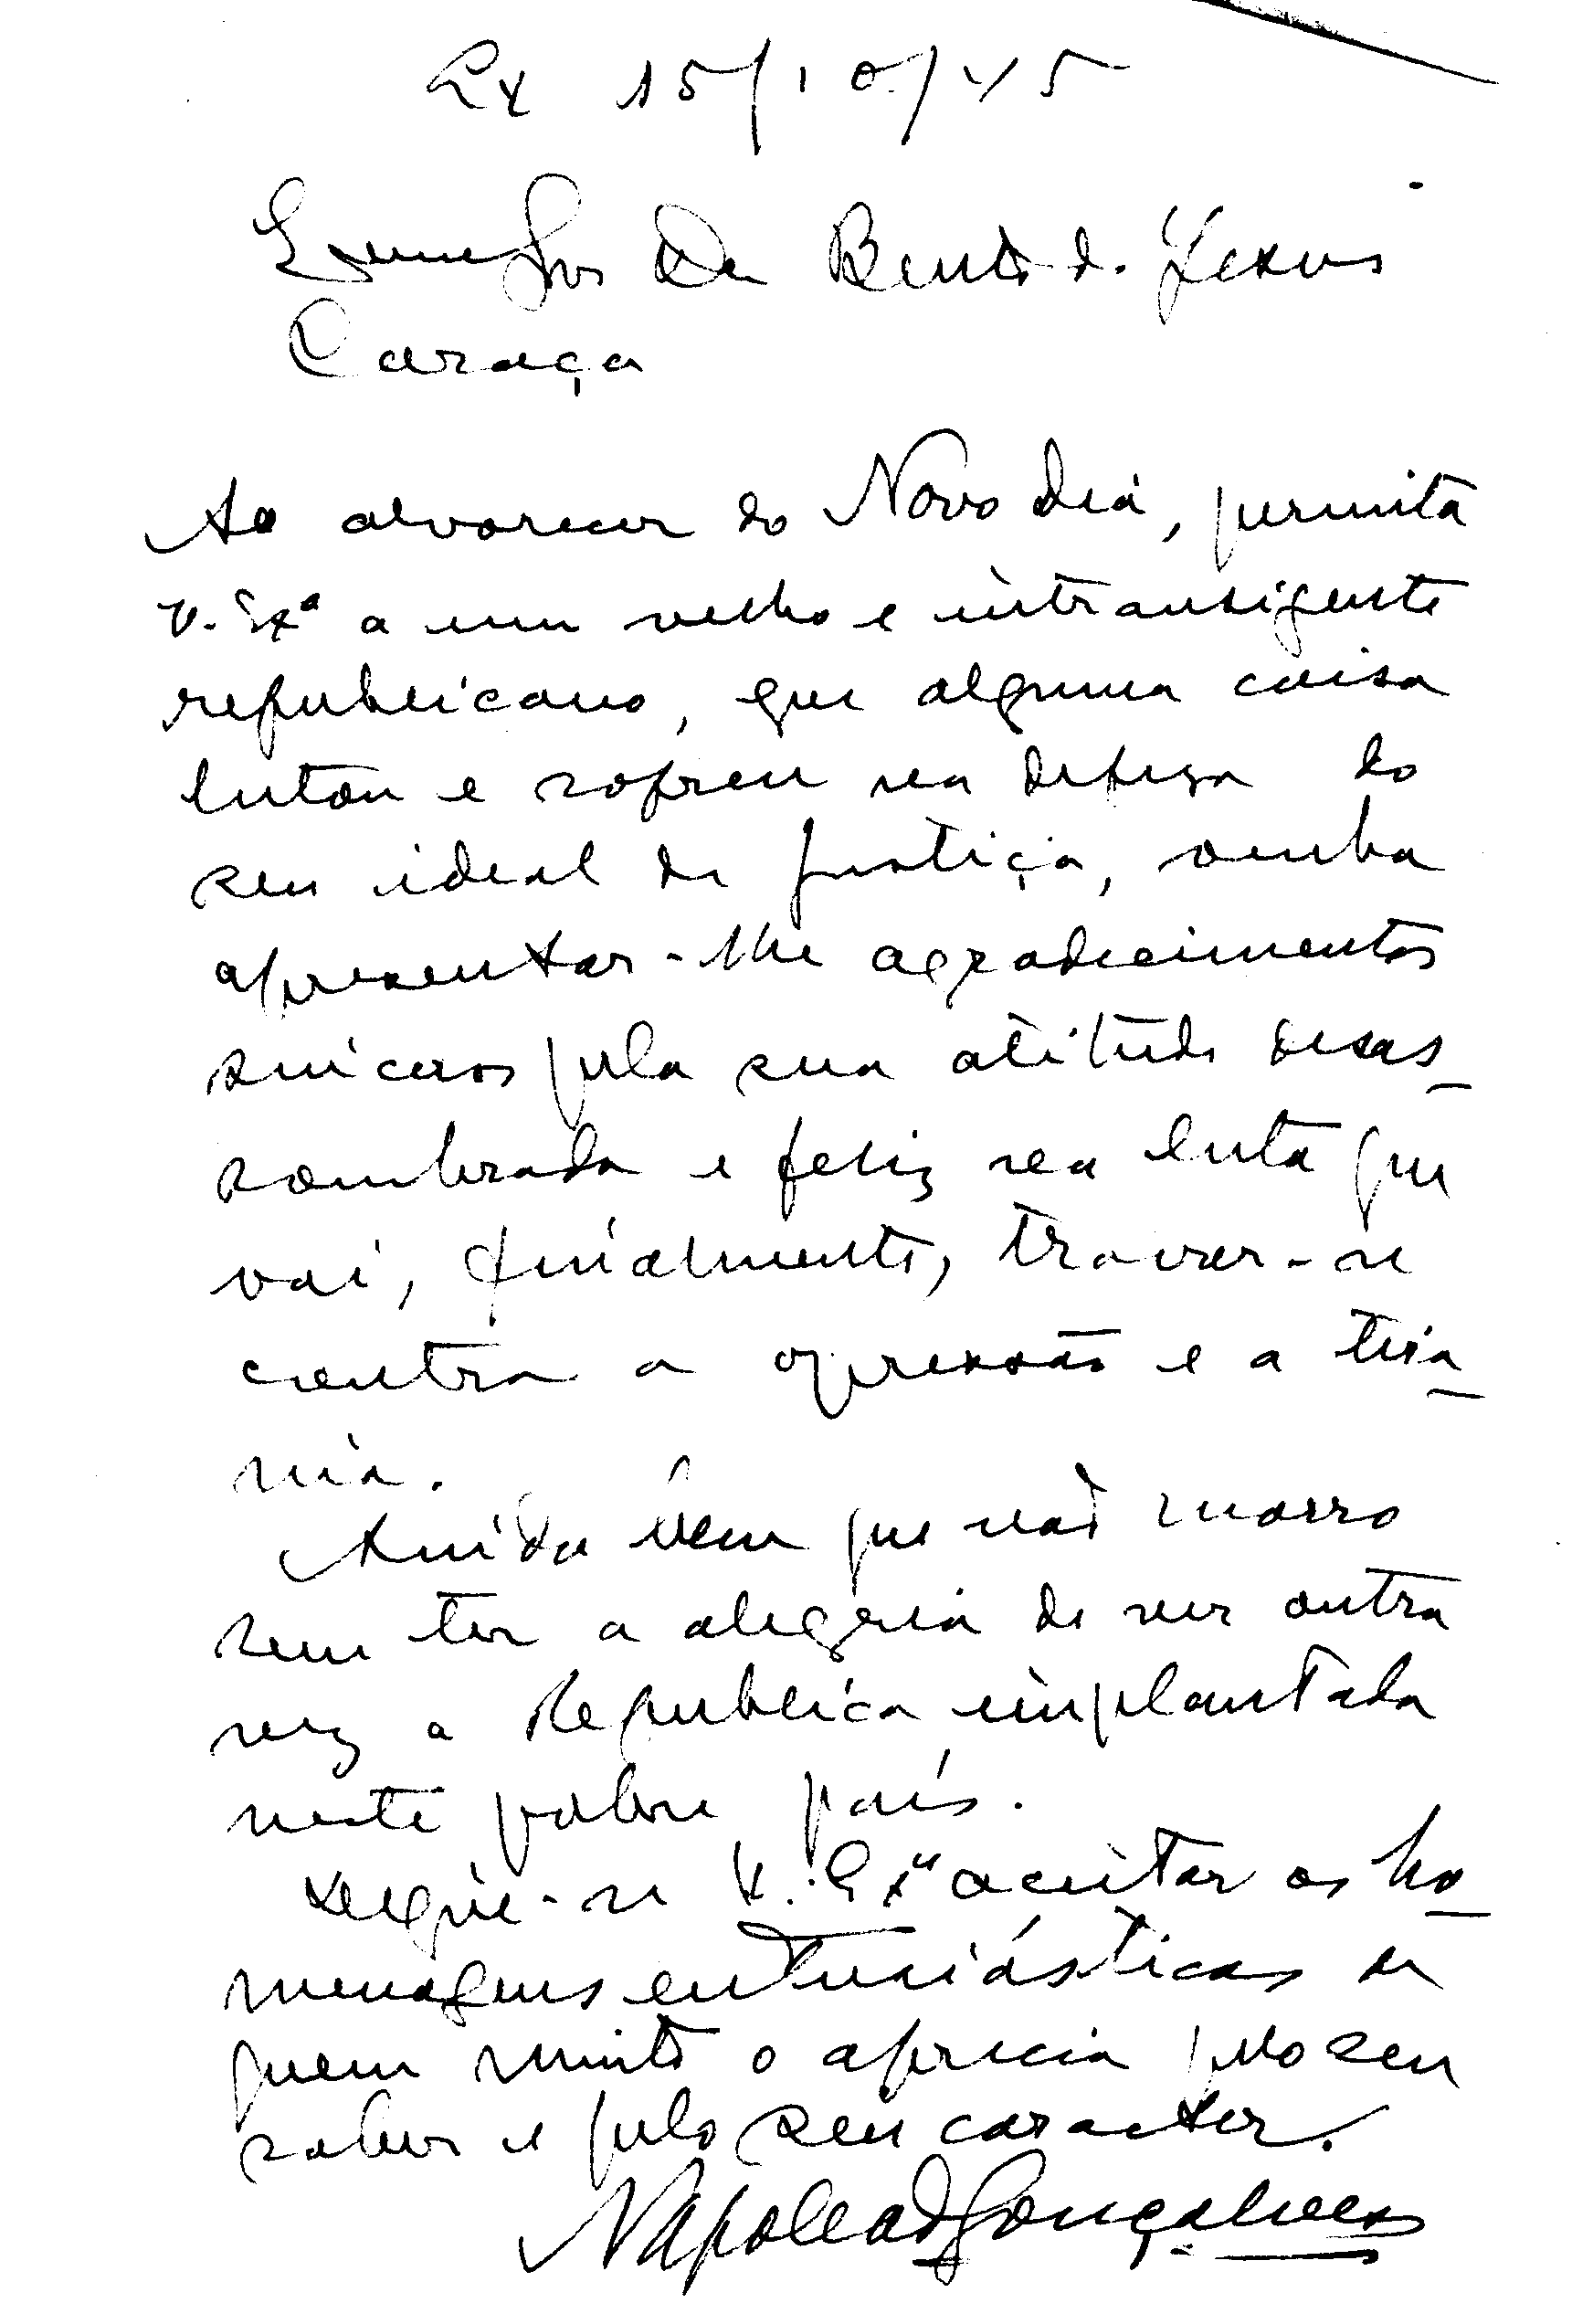 Lx 15/10/45
Exmo Snr Dr Bento de Jesus
Caraça
Ao alvorecer do Novo dia, permita
V. Exª a um velho e intransigente
republicano, que alguma coisa
lutou e sofreu na defeza do
seu ideal de justiça, venha
apresentar-lhe agradecimentos
sinceros pela sua atitude desas-
sombrada e feliz na luta que
vai, finalmente, travar-se
contra a opressão e a tira-
nia.
Ainda bem que não morro
sem ter a alegria de ver outra
vez a Republica implantada
neste pobre país.
Digne-se V. Exª aceitar as ho-
menagens entusiásticas de
quem muito o aprecia pelo seu
saber e pelo seu caracter.
Napoleão Gonçalves